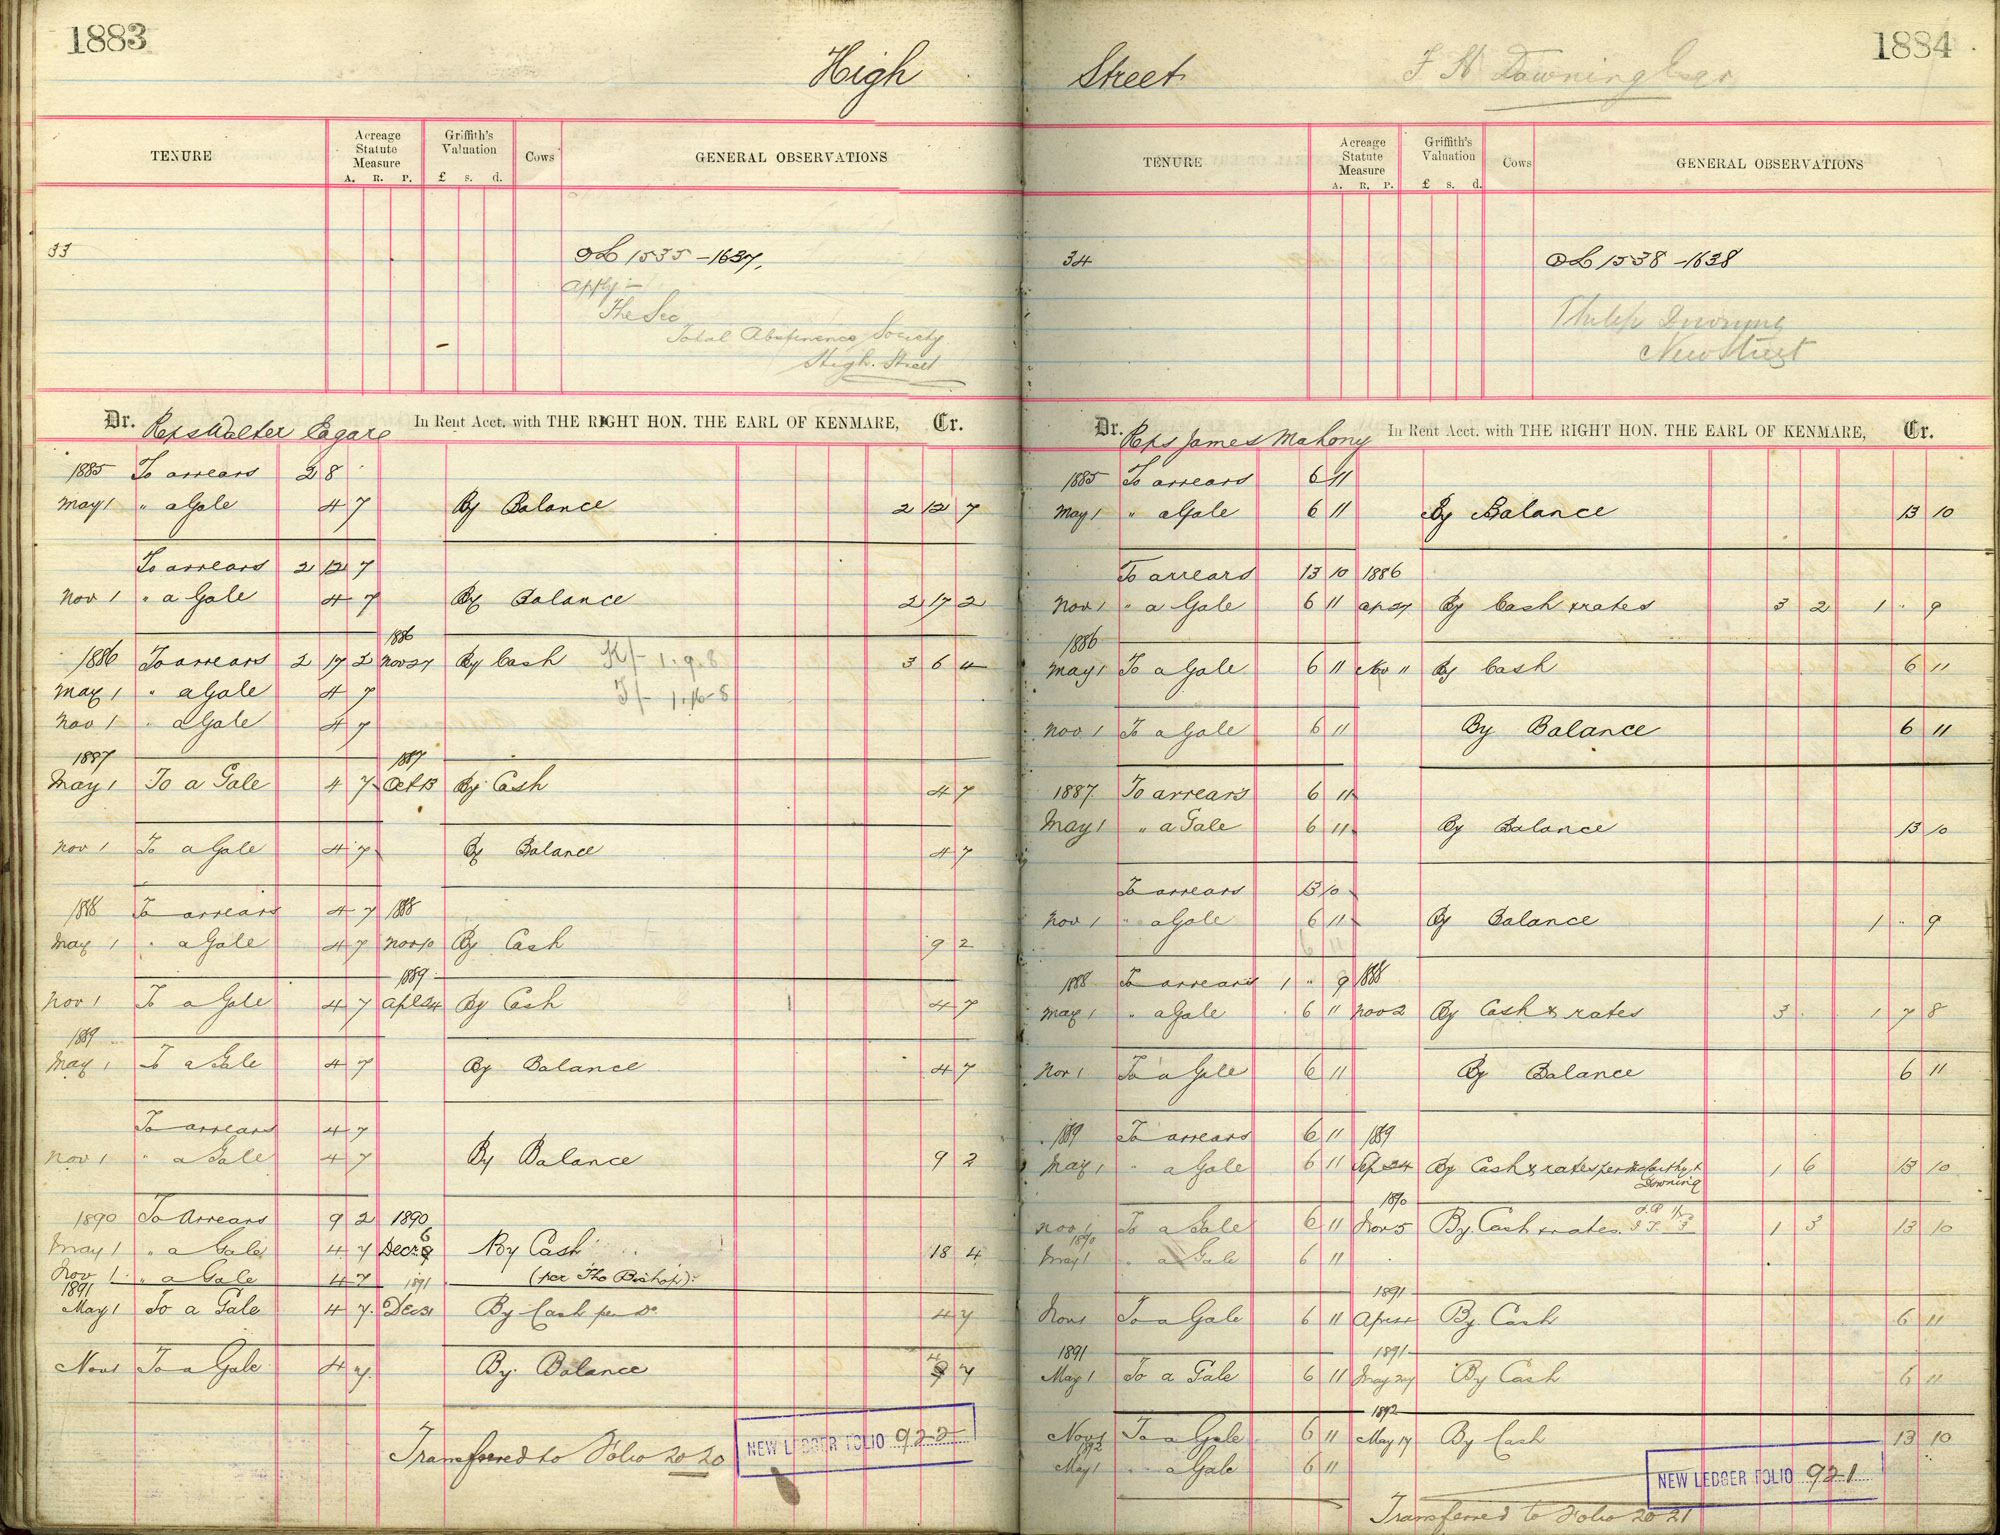 1883
High
TENURE
Acreage Statute Measure
A. R. P.
Griffith's Valuation
£ s. d.
Cows
GENERAL OBSERVATIONS
33
OL 1535-1637.
apply-
The Sec
Total Abstinence Society
High Street
Dr. Reps Walter Eagare In Rent Acct. with THE RIGHT HON. THE EARL OF KENMARE, Cr.
1885 To arrears 2 8
May 1 " a Gale 4 7 By Balance 2 12 7
To arrears 2 12 7
Nov 1 " a Gale 4 7 By Balance 2 17 2
1886
1886 To arrears 2 17 2 Nov 27 By Cash K/- 1.9.8 3 6 4
May 1 " a Gale 4 7 J/- 1.16-8
Nov 1 " a Gale 4 7
1887 1887
May 1 To a Gale 4 7 Oct 13 By Cash 4 7
Nov 1 To a Gale 4 7 By Balance 4 7
1888 To arrears 4 7 1888
May 1 " a Gale 4 7 Nov 10 By Cash 9 2
1889
Nov 1 To a Gale 4 7 Apl 24 By Cash 4 7
1889
May 1 To a Gale 4 7 By Balance 4 7
To arrears 4 7
Nov 1 " a Gale 4 7 By Balance 9 2
1890 To Arrears 9 2 1890
May 1 " a Gale 4 7 Decr 6 By Cash 18 4
Nov 1 " a Gale 4 7 1891 (per Tho Bishop)
1891
May 1 To a Gale 4 7 Dec 31 By Cash per Do 4 7
Nov 1 To a Gale 4 7 By Balance 4 7
Transferred to Folio 2020
NEW LEDGER FOLIO 922
1884
Street
F H Downing Esqr
TENURE
Acreage Statute Measure
A. R. P.
Griffith's Valuation
£ s. d.
Cows
GENERAL OBSERVATIONS
34
OL 1538-1638
Philip Downing
New Street
Dr. Reps James Mahony In Rent Acct. with THE RIGHT HON. THE EARL OF KENMARE, Cr.
1885 To arrears 6 11
May 1 " a Gale 6 11 By Balance 13 10
To arrears 13 10 1886
Nov 1 " a Gale 6 11 Ap 27 By Cash & rates 3 2 1 " 9
1886
May 1 To a Gale 6 11 Nov 11 By Cash 6 11
Nov 1 To a Gale 6 11 By Balance 6 11
1887 To arrears 6 11
May 1 " a Gale 6 11 By Balance 13 10
To arrears 13 10
Nov 1 " a Gale 6 11 By Balance 1 " 9
6 11
1888 To arrears 1 " 9 1888
May 1 " a Gale 6 11 Nov 2 By Cash & rates 3 1 7 8
Nov 1 To a Gale 6 11 By Balance 6 11
1889 To arrears 6 11 1889
May 1 " a Gale 6 11 Sep 24 By Cash & rates per McCarthy & Downing 1 6 13 10
1890
Nov 1 To a Gale 6 11 Nov 5 By Cash & rates 1 3 13 10
1890
May 1 " a Gale 6 11
1891
Nov 1 To a Gale 6 11 Apr 4 By Cash 6 11
1891 1891
May 1 To a Gale 6 11 May 27 By Cash 6 11
1892
Nov 1 To a Gale 6 11 May 17 By Cash 13 10
1892
May 1 " a Gale 6 11
NEW LEDGER FOLIO 921
Transferred to Folio 2021